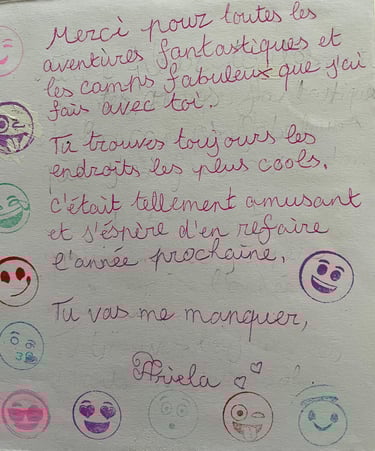 Merci pour toutes les
aventures fantastiques et
les camps fabuleux que j'ai
fais avec toi.
Tu trouves toujours les
endroits les plus cools.
c'était tellement amusant
et s'éspère d'en refaire
l'année prochaine.
Tu vas me manquer,
Ariela